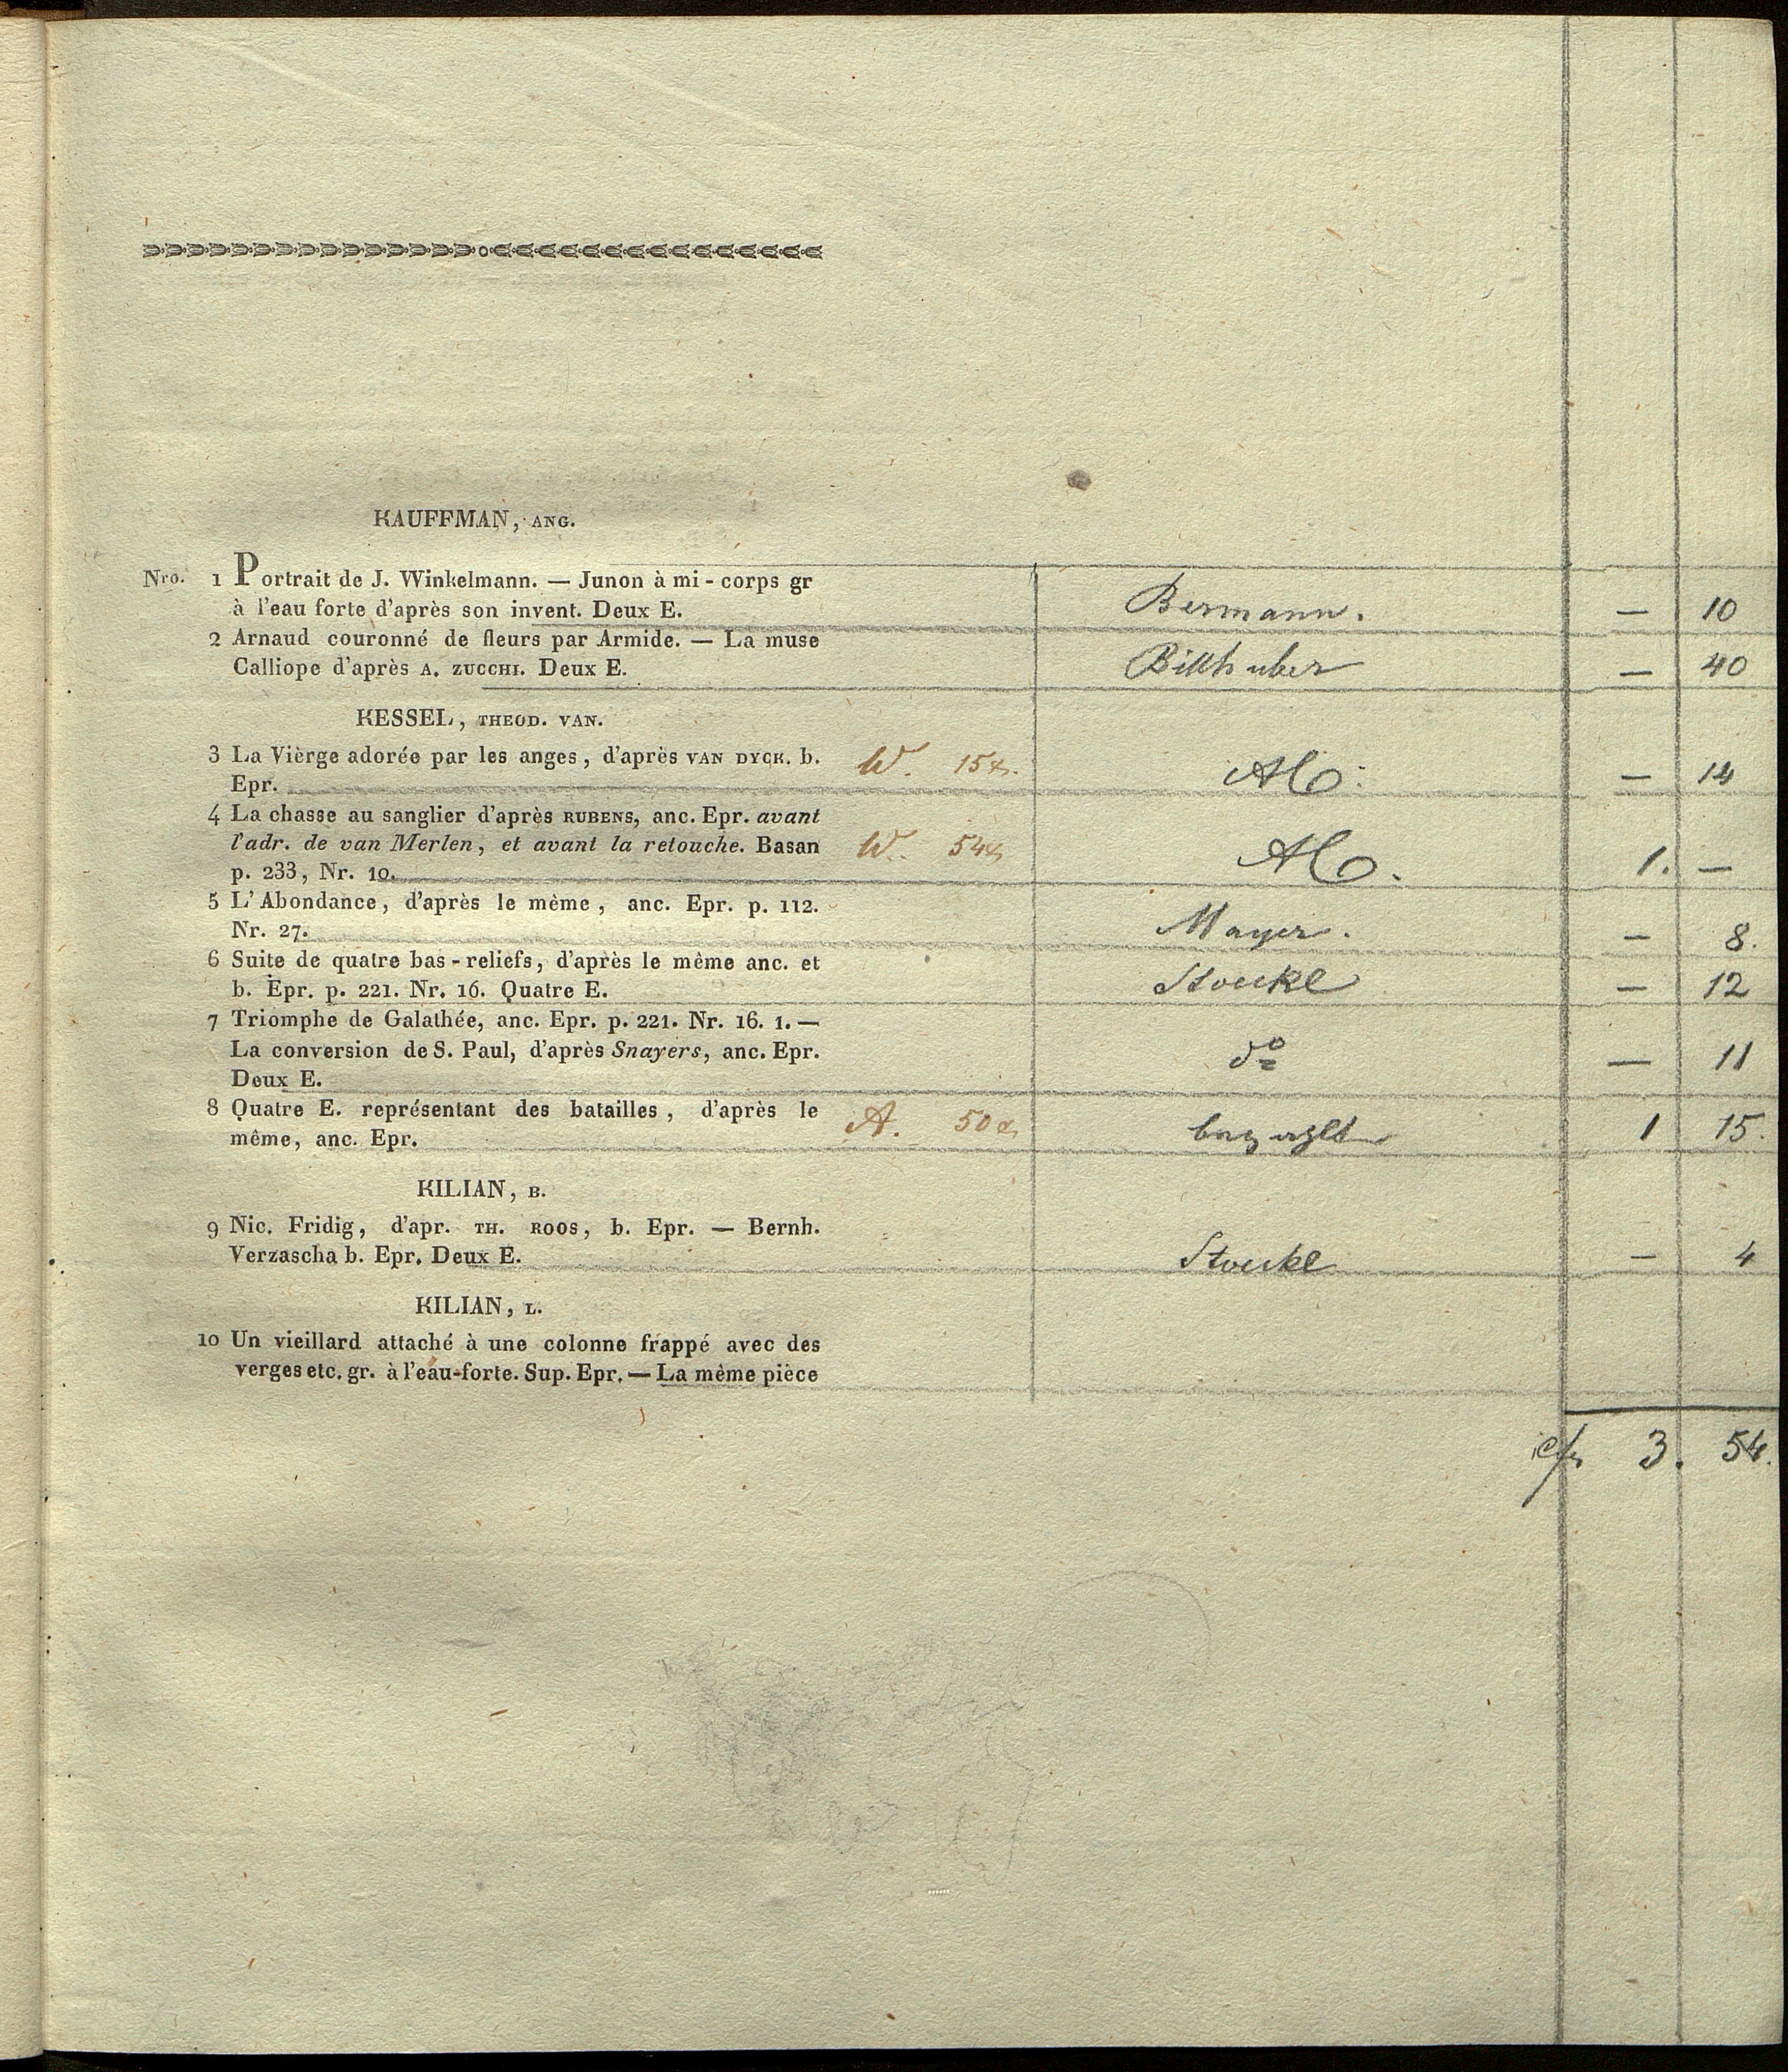 KAUFFMAN, ANG.
Nro. 1 Portrait de J. Winkelmann. — Junon à mi-corps gr
à l'eau forte d'après son invent. Deux E. Bermann. — 10
2 Arnaud couronné de fleurs par Armide. — La muse
Calliope d'après A. ZUCCHI. Deux E. Billhuber — 40
KESSEL, THEOD. VAN.
3 La Vièrge adorée par les anges, d'après VAN DYCK. b. W. 15x.
Epr. — 14
4 La chasse au sanglier d'après RUBENS, anc. Epr. avant
l'adr. de van Merlen, et avant la retouche. Basan W. 54x
p. 233, Nr. 10. 1. —
5 L'Abondance, d'après le même, anc. Epr. p. 112.
Nr. 27. Mayer. — 8.
6 Suite de quatre bas-reliefs, d'après le même anc. et
b. Epr. p. 221. Nr. 16. Quatre E. Stoeckl — 12
7 Triomphe de Galathée, anc. Epr. p. 221. Nr. 16. 1. —
La conversion de S. Paul, d'après Snayers, anc. Epr. do — 11
Deux E.
8 Quatre E. représentant des batailles, d'après le A. 50x
même, anc. Epr. 1 15.
KILIAN, B.
9 Nic. Fridig, d'apr. TH. ROOS, b. Epr. — Bernh.
Verzascha b. Epr. Deux E. Stoeckl — 4
KILIAN, L.
10 Un vieillard attaché à une colonne frappé avec des
verges etc. gr. à l'eau-forte. Sup. Epr. — La mème pièce
3. 54.